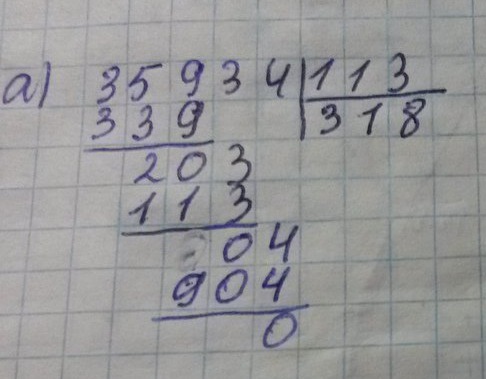 a) 35934 113
339 318
203
113
04
904
0